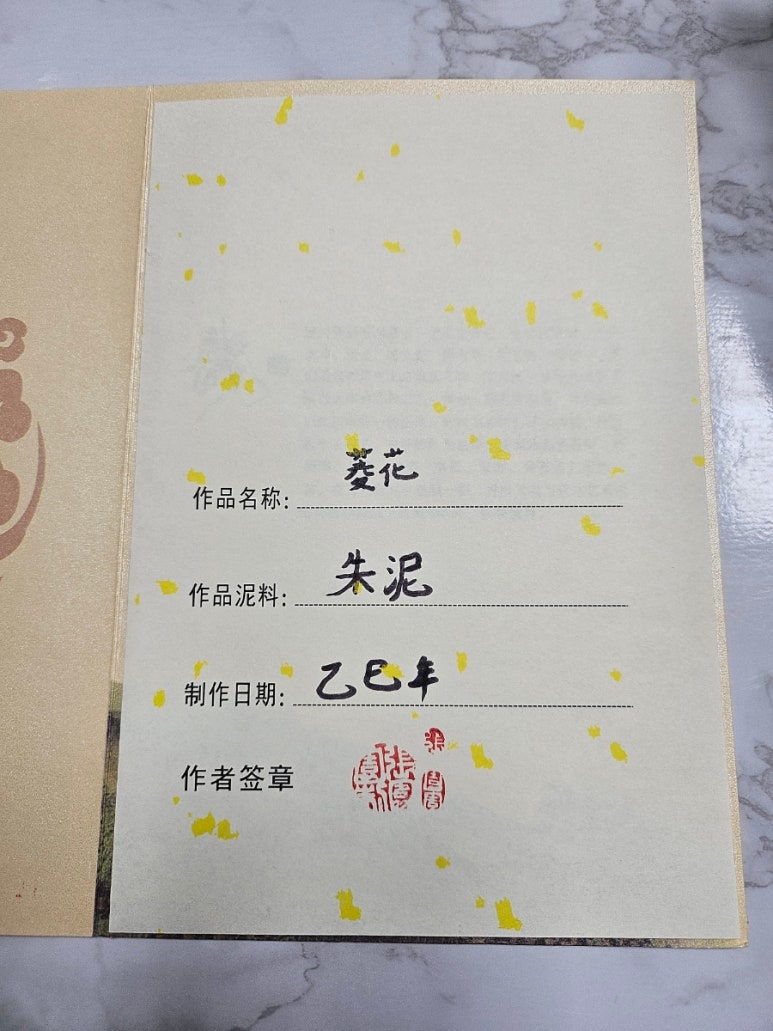 作品名称: 菱花
作品泥料: 朱泥
制作日期: 乙巳年
作者签章